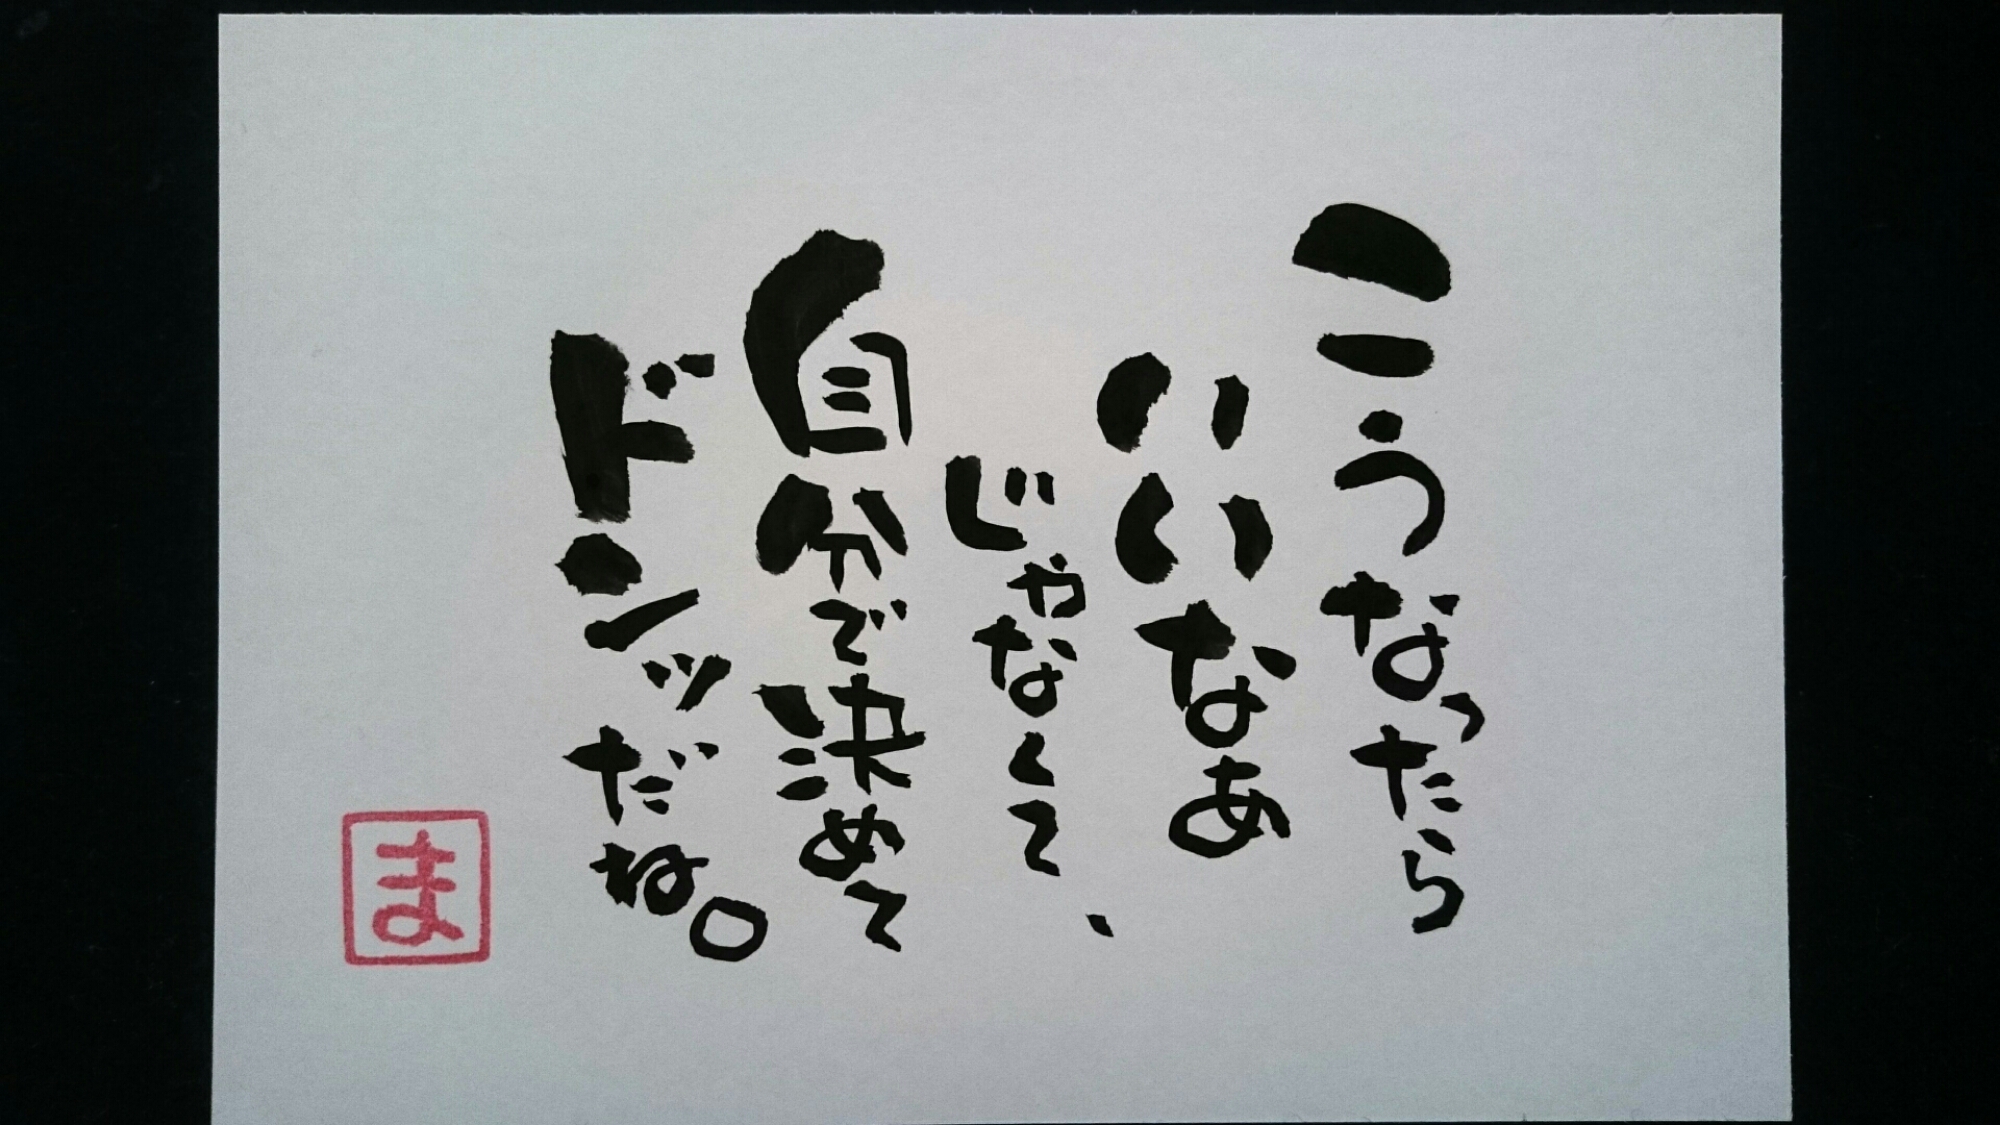 こうなったら
いいなあ
じゃなくて、
自分で決めて
ドンッだね。
ま